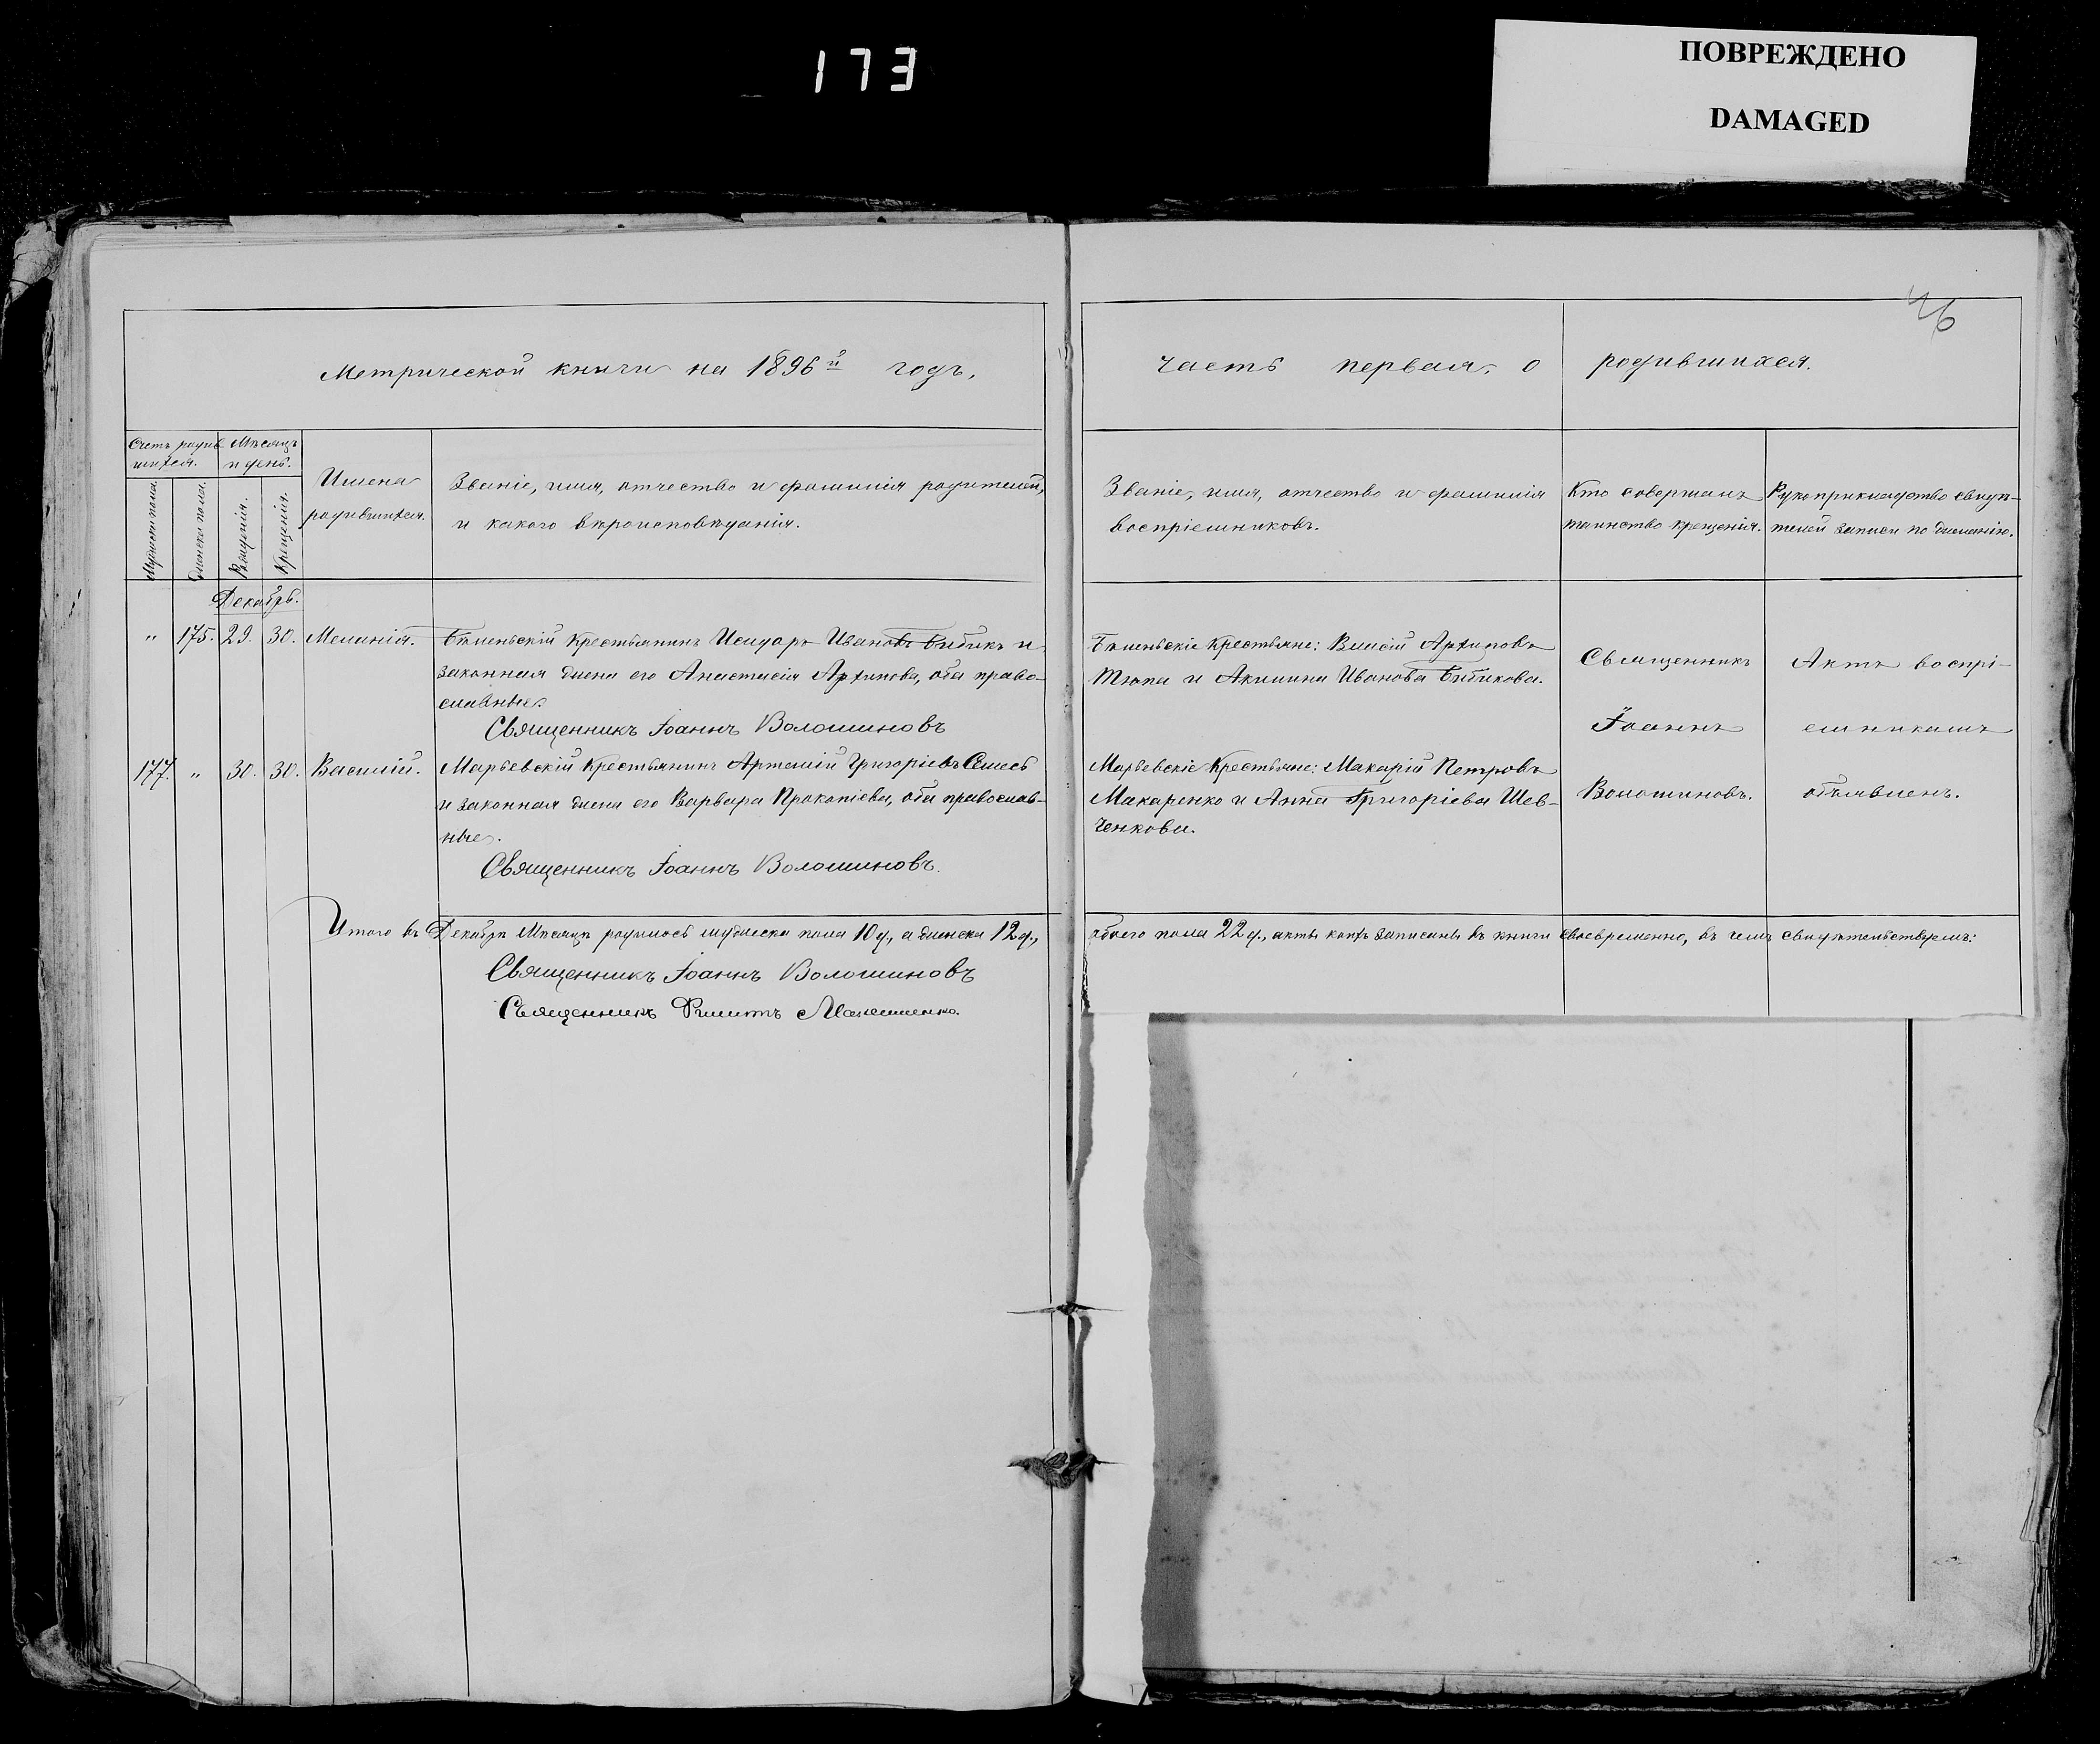 173
ПОВРЕЖДЕНО
DAMAGED
46
Метрической книги на 1896й годъ,
часть первая, о родившихся.
Счетъ родив
шихся.
Мѣсяцъ
и день.
Мужеска пола.
Женска пола.
Рожденія.
Крещенія.
Имена
родившихся.
Званіе, имя, отчество и фамилія родителей,
и какого вѣроисповѣданія.
Званіе, имя, отчество и фамилія
воспріемниковъ.
Кто совершалъ
таинство крещенія.
Рукоприкладство свидѣ-
телей записи по желанію.
Декабрь.
" 175. 29. 30. Меланія.
крестьянинъ Исидоръ Ивановъ Бибикъ и
законная жена его Анастасія Архипова, оба право-
славные.
Священникъ Іоаннъ Волошиновъ
крестьяне: Архиповъ
и Акилина Иванова Бибикова.
Священникъ
Іоаннъ
Волошиновъ.
Актъ воспрі-
емникамъ
объявленъ.
177. " 30. 30. Василій.
Марьевскій крестьянинъ Артемій Григоріевъ
и законная жена его Варвара Прокопіева, оба православ-
ные.
Священникъ Іоаннъ Волошиновъ.
Марьевскіе крестьяне: Макарій Петровъ
Макаренко и Анна Григоріева Шев-
ченкова.
Итого въ Декабрѣ мѣсяцѣ родилось мужеска пола 10 д., а женска 12 д.,
обоего пола 22 д., акты коихъ записаны въ книги своевременно, въ чемъ свидѣтельствуемъ:
Священникъ Іоаннъ Волошиновъ
Священникъ Филиппъ